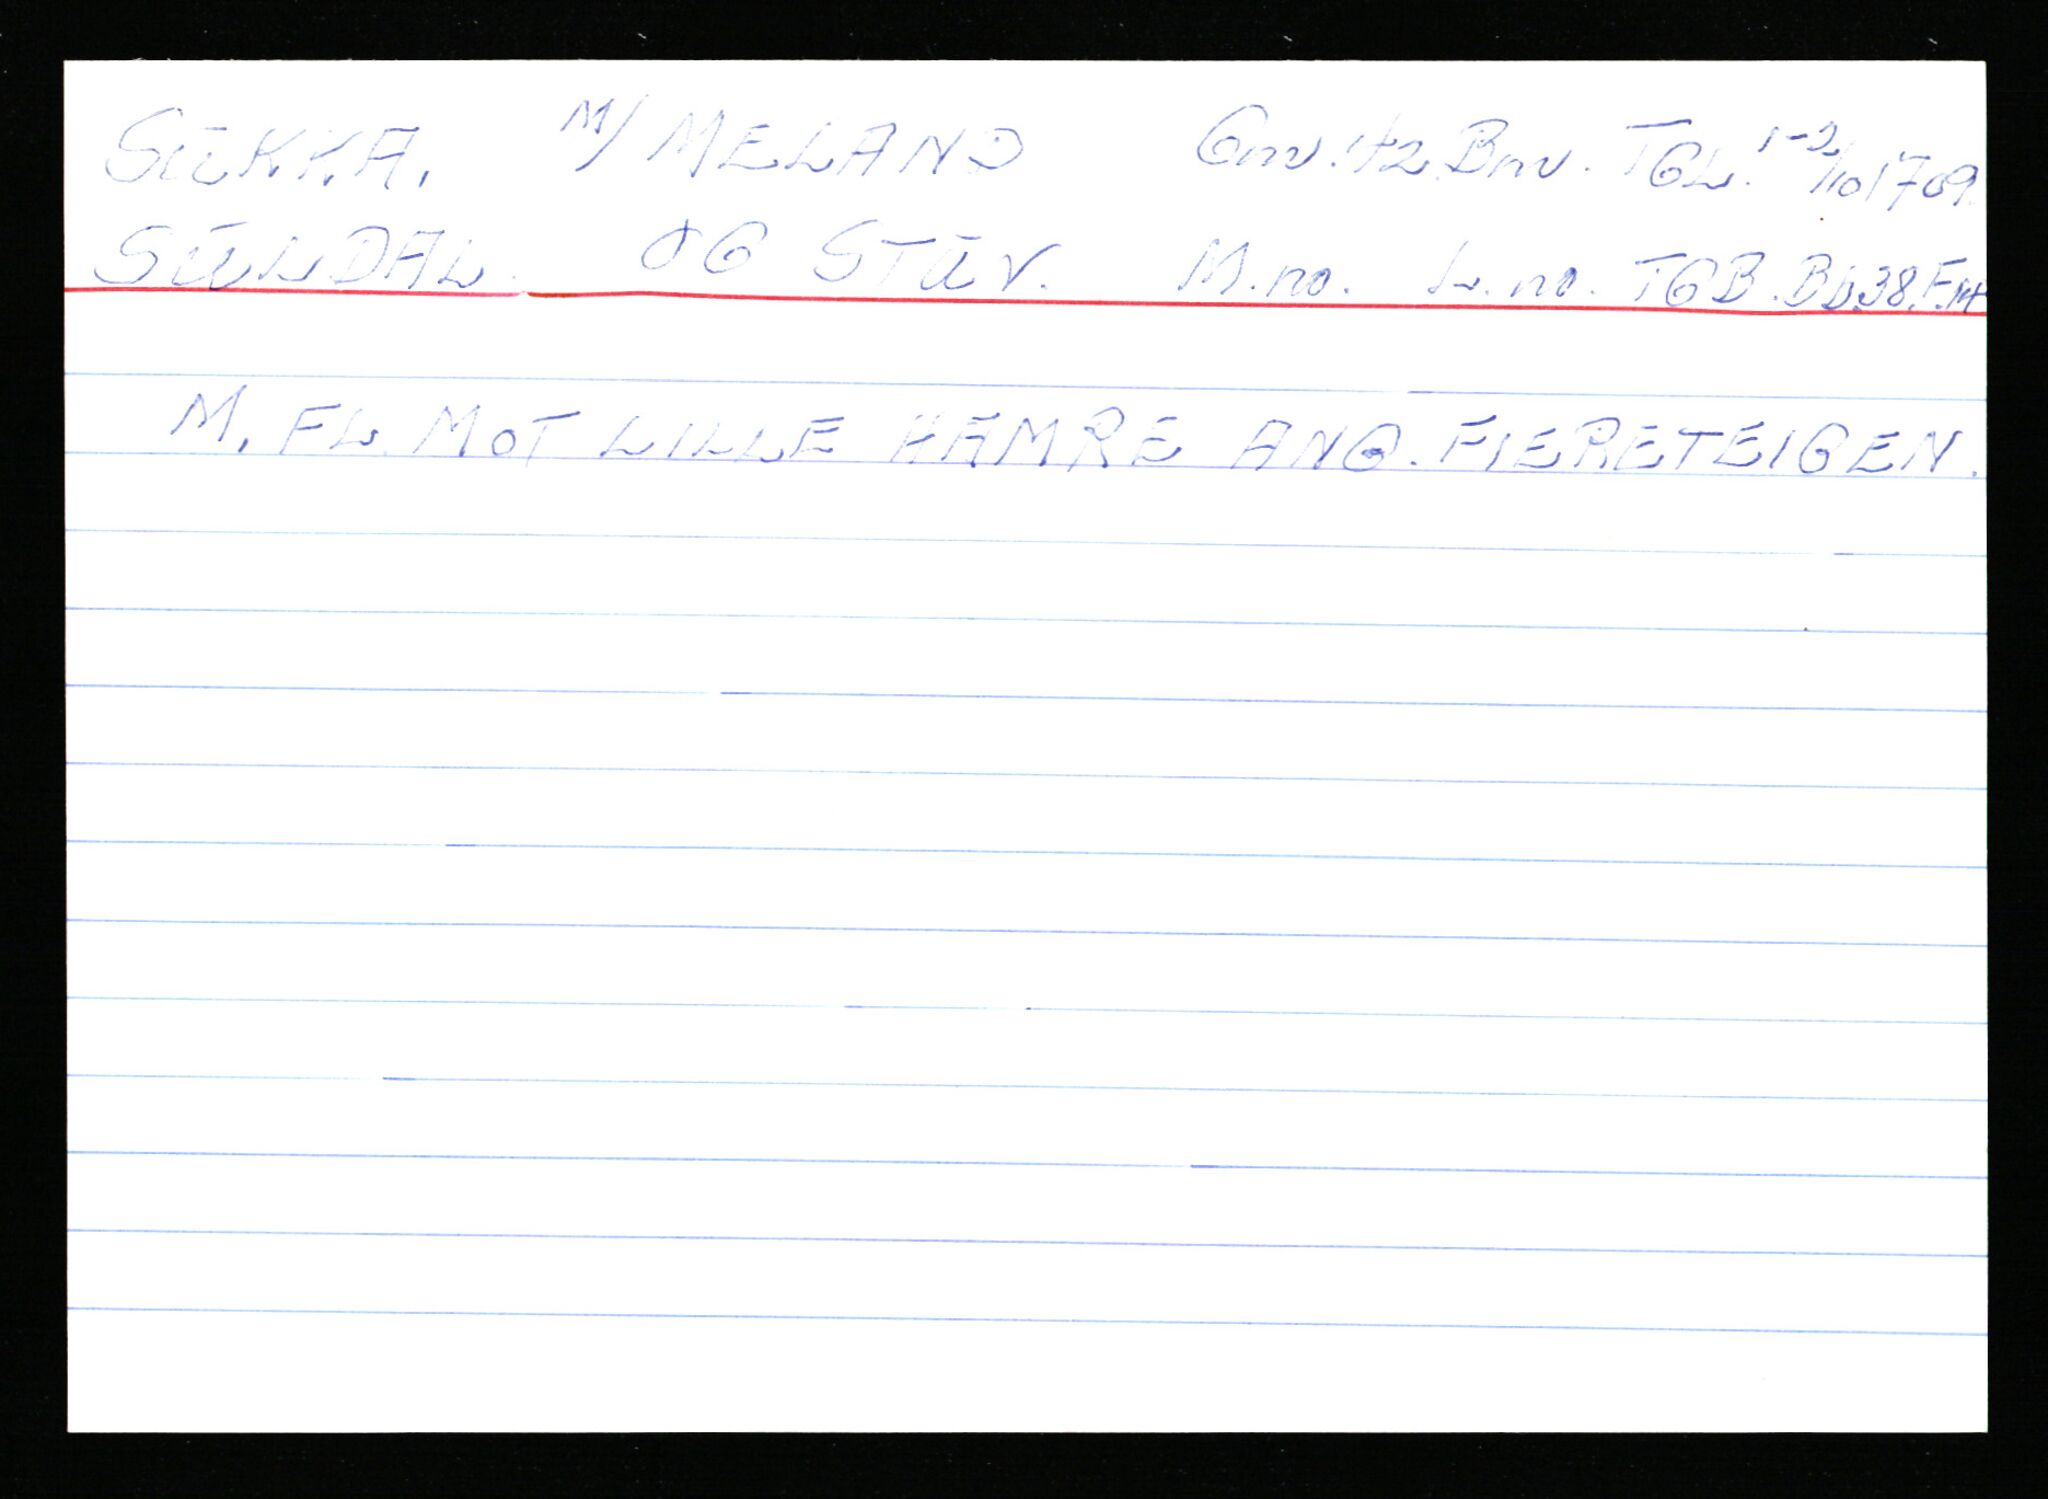 SŪKKA. M/ MELAND Gnv. 42. Bnv. TGL. 1-2/10 1709.
SŪLDAL. OG STŪV. M.no. L.no. TGB. Bb.38.F.
M. FL. MOT LILLE HAMRE ANG. FIERETEIGEN.